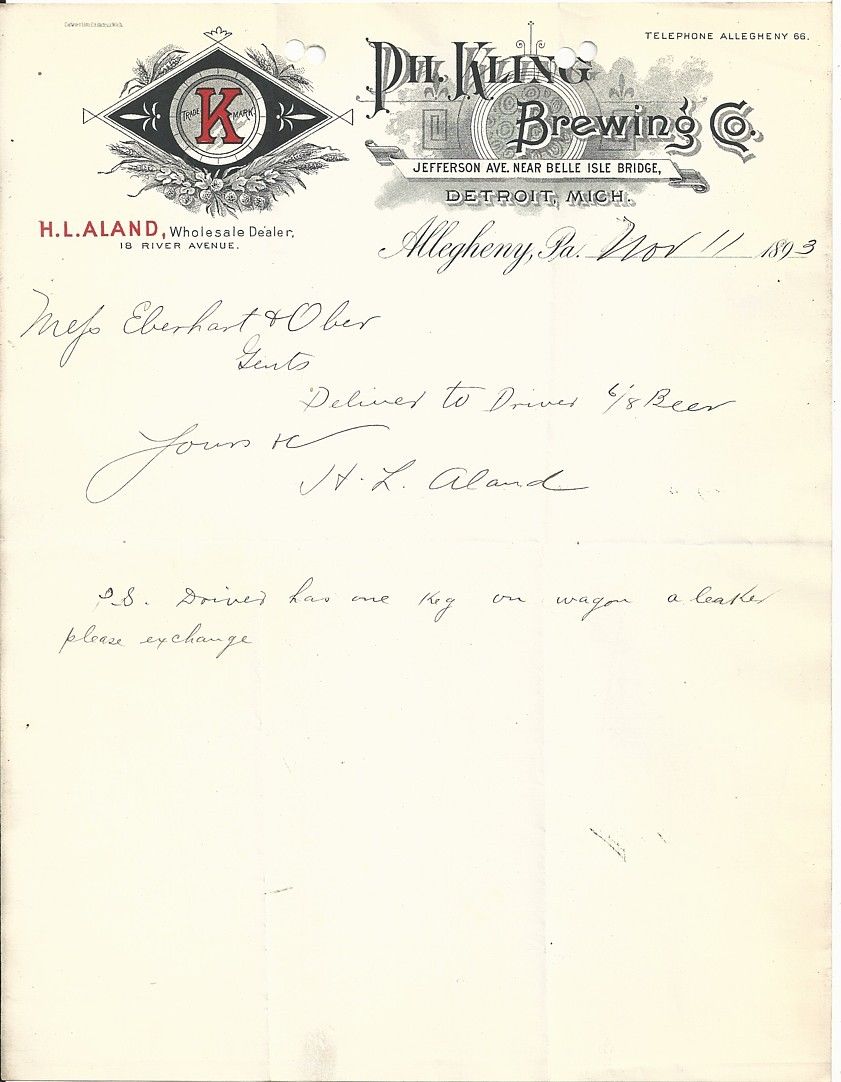 TELEPHONE ALLEGHENY 66.
TRADE K MARK
PH. KLING
Brewing Co.
JEFFERSON AVE. NEAR BELLE ISLE BRIDGE,
DETROIT, MICH.
H.L.ALAND, Wholesale Dealer,
18 RIVER AVENUE.
Allegheny, Pa. Nov 11 1893
Mess Eberhart & Ober
Gents
Deliver to Driver 6/8 Beer
Yours &c
H. L. Aland
P.S. Driver has one Keg on wagon a leaker
please exchange